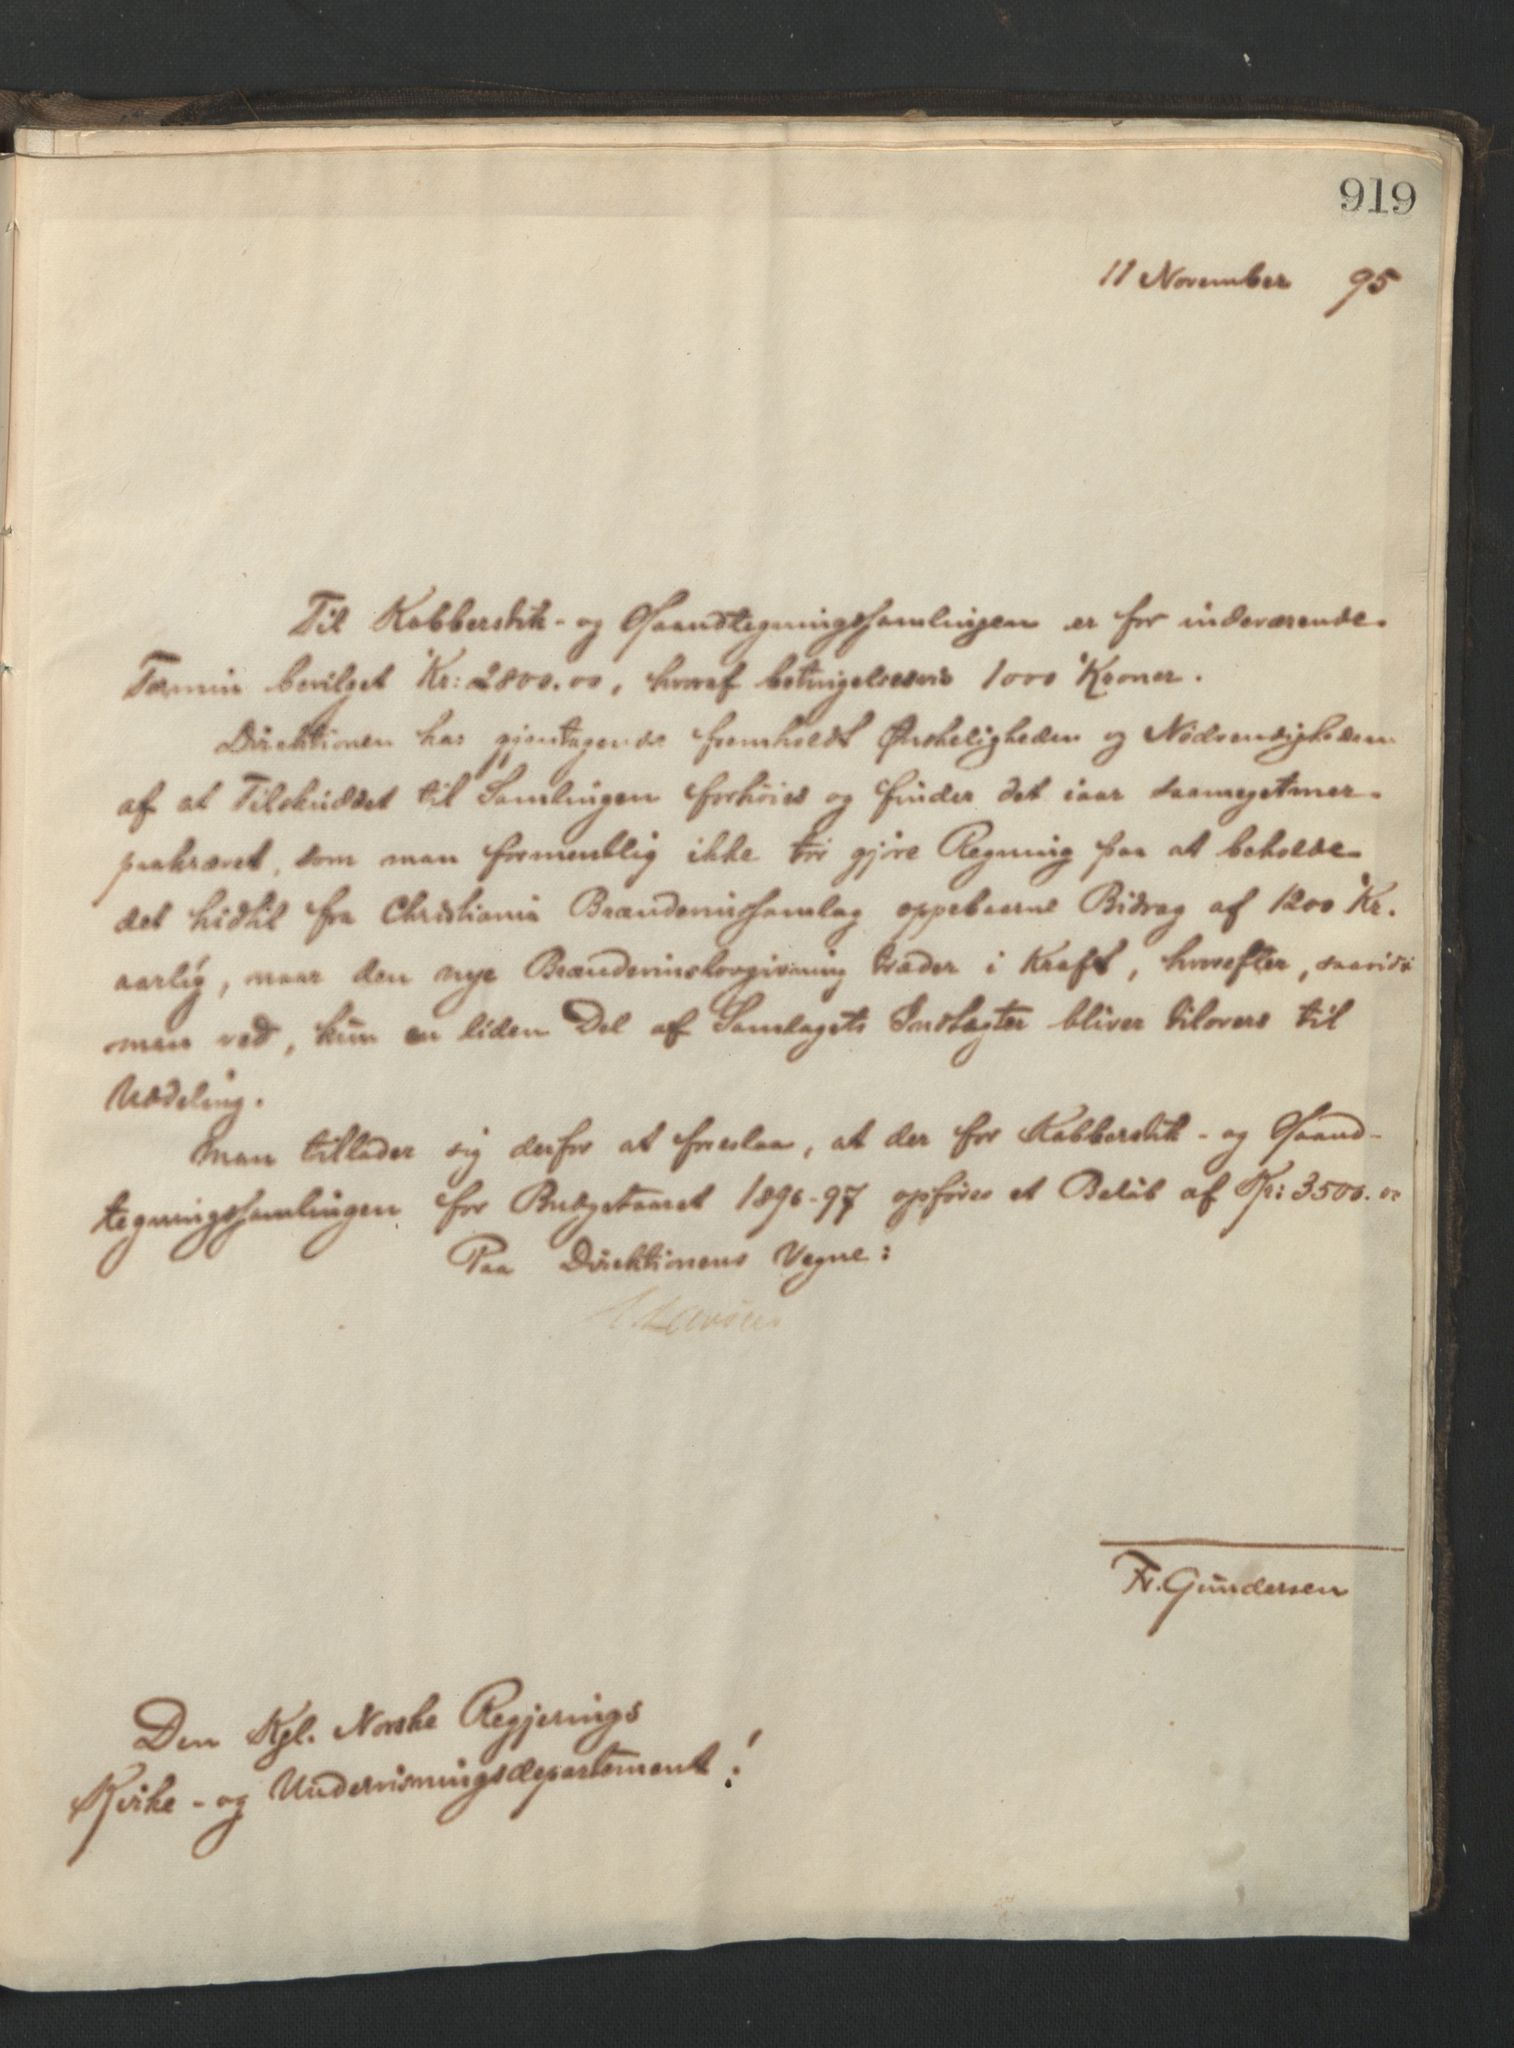 919
11 November 95
Til Kobberstik- og Haandtegningssamlingen er for indeværende
Termin bevilget Kr: 2800.00, hvoraf betingelsesvis 1000 Kroner.
Direktionen har gjentagende fremholdt Ønskeligheden og Nödvendigheden
af at Tilskuddet til Samlingen forhöies og finder det iaar saameget mer
paakrævet, som man formentlig ikke tör gjöre Regning paa at beholde
det hidtil fra Christiania Brændevinssamlag oppebaarne Bidrag af 1200 Kr.
aarlig, naar den nye Brændevinslovgivning træder i Kraft, hvorefter, saavidt
man ved, kun en liden Del af Samlagets Indtægter bliver tilovers til
Uddeling.
Man tillader sig derfor at foreslaa, at der for Kobberstik- og Haand-
tegningssamlingen for Budgetaaret 1896-97 opföres et Belöb af Kr: 3500.00
Paa Direktionens Vegne:
Fr. Gundersen
Den Kgl. Norske Regjerings
Kirke- og Undervisningsdepartement!